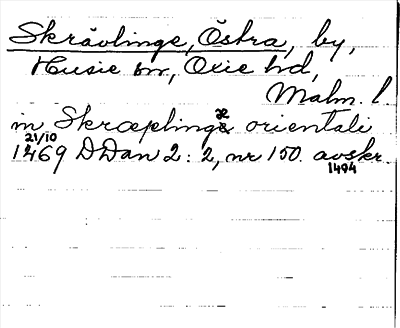 Skrävlinge, Östra, by,
Husie sn, Oxie hd,
Malm. l.
in Skræplingæ orientali
21/10
1469 DDan 2:2, nr 150. avskr.
1494